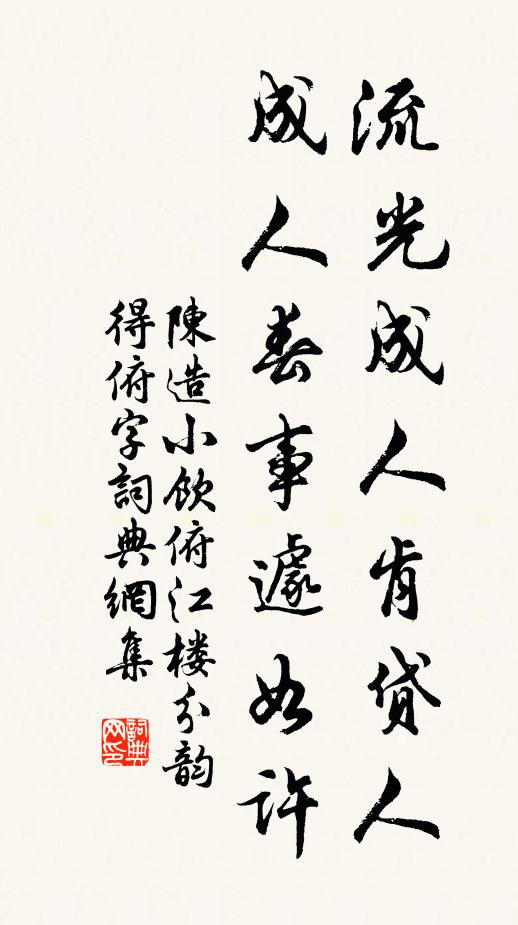 流光成人肯貸人
成人春事遽如許
陳造小飲俯江楼分韵
得俯字詞典網集
詞典网印